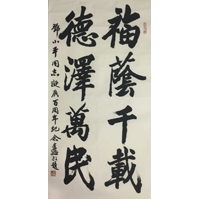 福蔭千載
德澤萬民
鄧小平同志誕辰百周年紀念